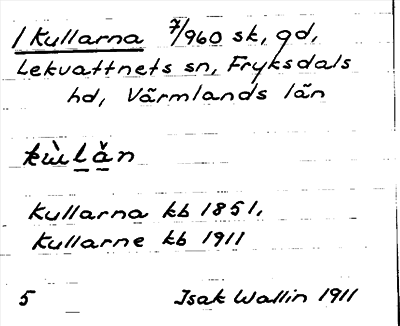 / Kullarna 7/960 sk, gd,
Lekvattnets sn, Fryksdals
hd, Värmlands län
kù̈lăn
Kullarna kb 1851,
Kullarne kb 1911
5 Isak Wallin 1911